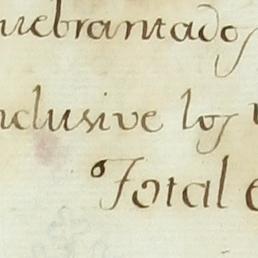 uebrantados
nclusive los
Total